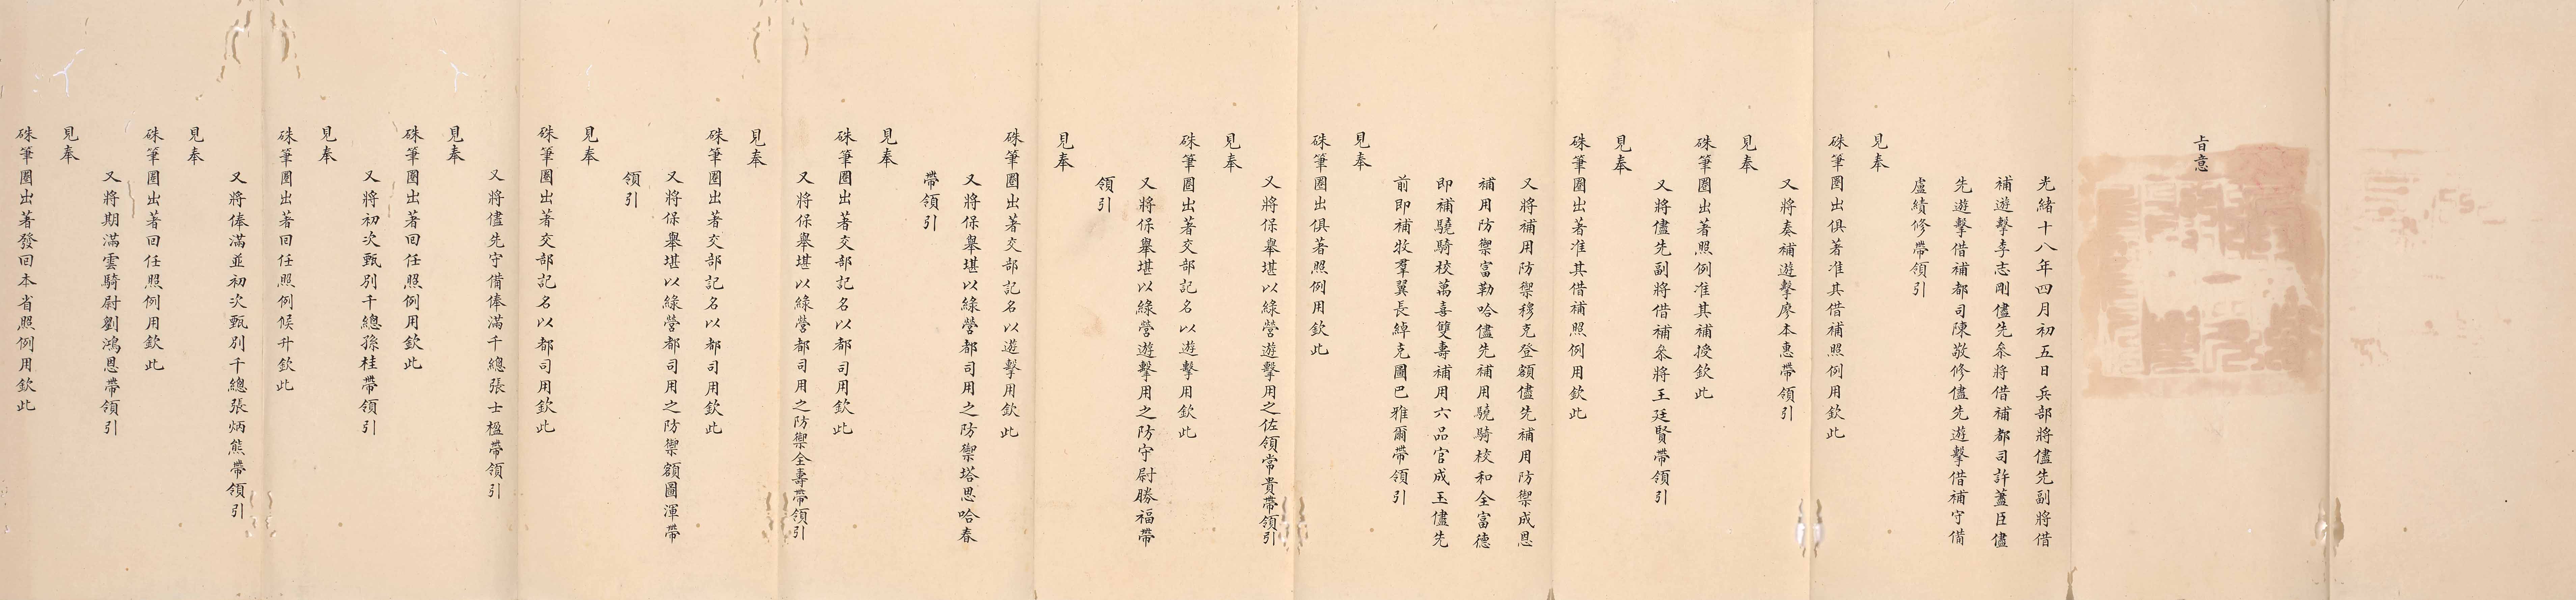 旨意
光緒十八年四月初五日兵部將儘先副將借
補遊擊李志剛儘先叅將借補都司許藎臣儘
先遊擊借補都司陳敬修儘先遊擊借補守備
盧績修帶領引
見奉
硃筆圈出俱著准其借補照例用欽此
又將奏補遊擊廖本惠帶領引
見奉
硃筆圈出著照例准其補授欽此
又將儘先副將借補叅將王廷賢帶領引
見奉
硃筆圈出著准其借補照例用欽此
又將補用防禦穆克登額儘先補用防禦成恩
補用防禦富勒哈儘先補用驍騎校和全富德
即補驍騎校萬喜雙壽補用六品官成玉儘先
前即補牧羣翼長綽克圖巴雅爾帶領引
見奉
硃筆圈出俱著照例用欽此
又將保舉堪以綠營遊擊用之佐領常貴帶領引
見奉
硃筆圈出著交部記名以遊擊用欽此
又將保舉堪以綠營遊擊用之防守尉勝福帶
領引
見奉
硃筆圈出著交部記名以遊擊用欽此
又將保舉堪以綠營都司用之防禦塔思哈春
帶領引
見奉
硃筆圈出著交部記名以都司用欽此
又將保舉堪以綠營都司用之防禦全壽帶領引
見奉
硃筆圈出著交部記名以都司用欽此
又將保舉堪以綠營都司用之防禦額圖渾帶
領引
見奉
硃筆圈出著交部記名以都司用欽此
又將儘先守備俸滿千總張士楹帶領引
見奉
硃筆圈出著回任照例用欽此
又將初次甄別千總孫桂帶領引
見奉
硃筆圈出著回任照例候升欽此
又將俸滿並初次甄別千總張炳熊帶領引
見奉
硃筆圈出著回任照例用欽此
又將期滿雲騎尉劉鴻恩帶領引
見奉
硃筆圈出著發回本省照例用欽此